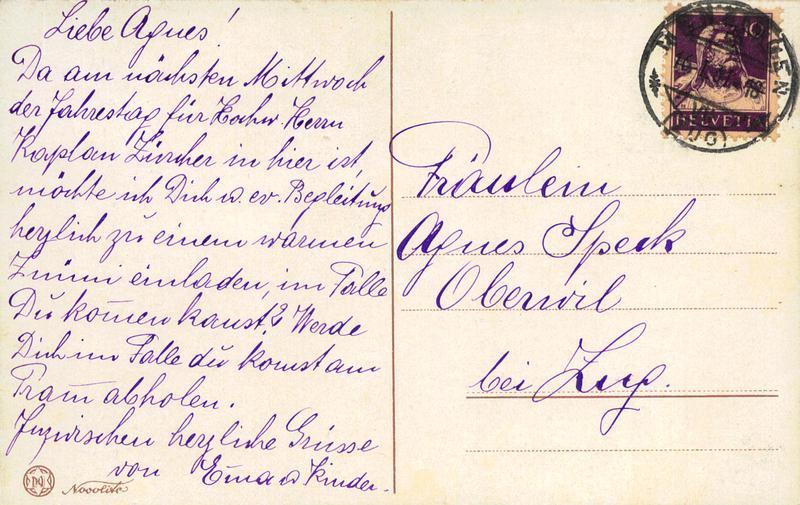 Liebe Agnes!
Da am nächsten Mittwoch
der Jahrestag für Hochw Herrn
Kaplan Zürcher in hier ist,
möchte ich Dich u. ev. Begleitung
herzlich zu einem warmen
Znüni einladen, im Falle
Du kom̄en kanst? Werde
Dich im Falle du komst am
Tram̄ abholen.
Inzwischen herzliche Grüsse
von Em̄a u Kinder.
Novolito
10
HELVETIA
Fräulein
Agnes Speck
Oberwil
bei Zug.